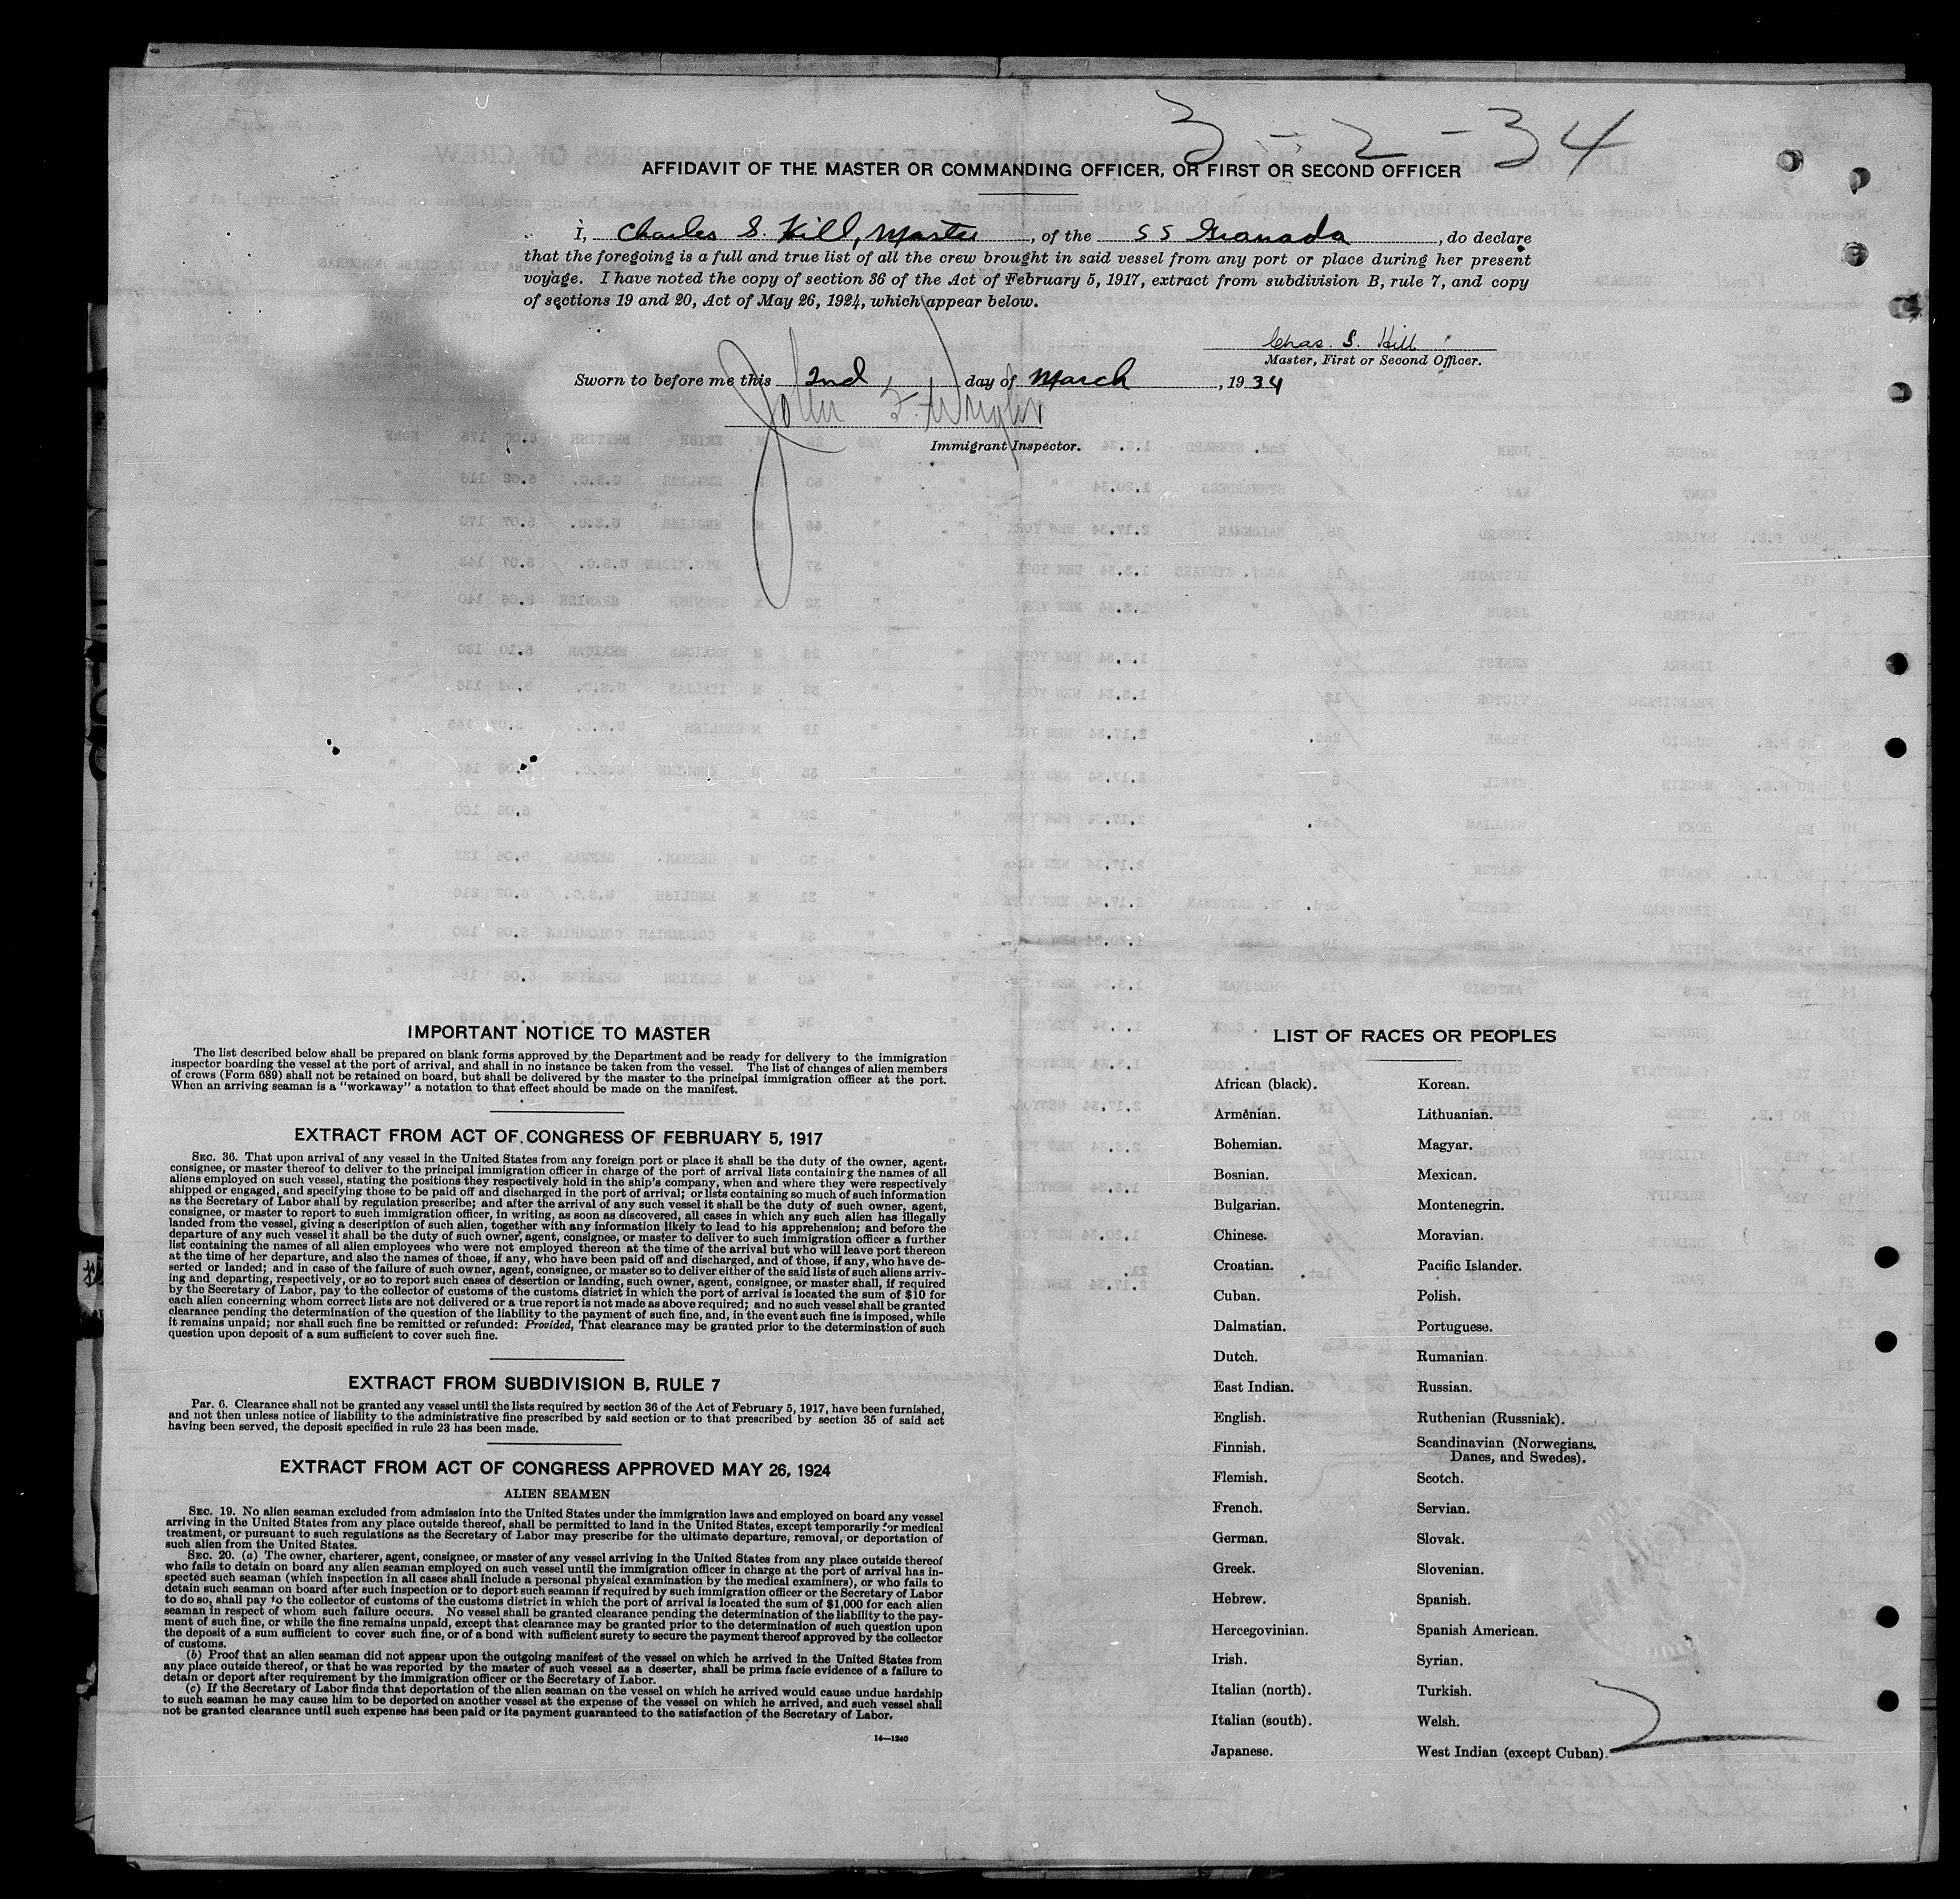 3 - 2 - 34
AFFIDAVIT OF THE MASTER OR COMMANDING OFFICER, OR FIRST OR SECOND OFFICER
I, Charles S. Hill, Master, of the SS Granada, do declare
that the foregoing is a full and true list of all the crew brought in said vessel from any port or place during her present
voyage. I have noted the copy of section 36 of the Act of February 5, 1917, extract from subdivision B, rule 7, and copy
of sections 19 and 20, Act of May 26, 1924, which appear below.
Chas. S. Hill
Master, First or Second Officer.
Sworn to before me this 2nd day of March, 1934
John F. Wright
Immigrant Inspector.
IMPORTANT NOTICE TO MASTER
The list described below shall be prepared on blank forms approved by the Department and be ready for delivery to the immigration
inspector boarding the vessel at the port of arrival, and shall in no instance be taken from the vessel. The list of changes of alien members
of crews (Form 689) shall not be retained on board, but shall be delivered by the master to the principal immigration officer at the port.
When an arriving seaman is a "workaway" a notation to that effect should be made on the manifest.
EXTRACT FROM ACT OF CONGRESS OF FEBRUARY 5, 1917
SEC. 36. That upon arrival of any vessel in the United States from any foreign port or place it shall be the duty of the owner, agent,
consignee, or master thereof to deliver to the principal immigration officer in charge of the port of arrival lists containing the names of all
aliens employed on such vessel, stating the positions they respectively hold in the ship's company, when and where they were respectively
shipped or engaged, and specifying those to be paid off and discharged in the port of arrival; or lists containing so much of such information
as the Secretary of Labor shall by regulation prescribe; and after the arrival of any such vessel it shall be the duty of such owner, agent,
consignee, or master to report to such immigration officer, in writing, as soon as discovered, all cases in which any such alien has illegally
landed from the vessel, giving a description of such alien, together with any information likely to lead to his apprehension; and before the
departure of any such vessel it shall be the duty of such owner, agent, consignee, or master to deliver to such immigration officer a further
list containing the names of all alien employees who were not employed thereon at the time of the arrival but who will leave port thereon
at the time of her departure, and also the names of those, if any, who have been paid off and discharged, and of those, if any, who have de-
serted or landed; and in case of the failure of such owner, agent, consignee, or master so to deliver either of the said lists of such aliens arriv-
ing and departing, respectively, or so to report such cases of desertion or landing, such owner, agent, consignee, or master shall, if required
by the Secretary of Labor, pay to the collector of customs of the customs district in which the port of arrival is located the sum of $10 for
each alien concerning whom correct lists are not delivered or a true report is not made as above required; and no such vessel shall be granted
clearance pending the determination of the question of the liability to the payment of such fine, and, in the event such fine is imposed, while
it remains unpaid; nor shall such fine be remitted or refunded: Provided, That clearance may be granted prior to the determination of such
question upon deposit of a sum sufficient to cover such fine.
EXTRACT FROM SUBDIVISION B, RULE 7
Par. 6. Clearance shall not be granted any vessel until the lists required by section 36 of the Act of February 5, 1917, have been furnished,
and not then unless notice of liability to the administrative fine prescribed by said section or to that prescribed by section 35 of said act
having been served, the deposit specified in rule 23 has been made.
EXTRACT FROM ACT OF CONGRESS APPROVED MAY 26, 1924
ALIEN SEAMEN
SEC. 19. No alien seaman excluded from admission into the United States under the immigration laws and employed on board any vessel
arriving in the United States from any place outside thereof, shall be permitted to land in the United States, except temporarily for medical
treatment, or pursuant to such regulations as the Secretary of Labor may prescribe for the ultimate departure, removal, or deportation of
such alien from the United States.
SEC. 20. (a) The owner, charterer, agent, consignee, or master of any vessel arriving in the United States from any place outside thereof
who fails to detain on board any alien seaman employed on such vessel until the immigration officer in charge at the port of arrival has in-
spected such seaman (which inspection in all cases shall include a personal physical examination by the medical examiners), or who fails to
detain such seaman on board after such inspection or to deport such seaman if required by such immigration officer or the Secretary of Labor
to do so, shall pay to the collector of customs of the customs district in which the port of arrival is located the sum of $1,000 for each alien
seaman in respect of whom such failure occurs. No vessel shall be granted clearance pending the determination of the liability to the pay-
ment of such fine, or while the fine remains unpaid, except that clearance may be granted prior to the determination of such question upon
the deposit of a sum sufficient to cover such fine, or of a bond with sufficient surety to secure the payment thereof approved by the collector
of customs.
(b) Proof that an alien seaman did not appear upon the outgoing manifest of the vessel on which he arrived in the United States from
any place outside thereof, or that he was reported by the master of such vessel as a deserter, shall be prima facie evidence of a failure to
detain or deport after requirement by the immigration officer or the Secretary of Labor.
(c) If the Secretary of Labor finds that deportation of the alien seaman on the vessel on which he arrived would cause undue hardship
to such seaman he may cause him to be deported on another vessel at the expense of the vessel on which he arrived, and such vessel shall
not be granted clearance until such expense has been paid or its payment guaranteed to the satisfaction of the Secretary of Labor.
14—1240
LIST OF RACES OR PEOPLES
African (black). Korean.
Armenian. Lithuanian.
Bohemian. Magyar.
Bosnian. Mexican.
Bulgarian. Montenegrin.
Chinese. Moravian.
Croatian. Pacific Islander.
Cuban. Polish.
Dalmatian. Portuguese.
Dutch. Rumanian.
East Indian. Russian.
English. Ruthenian (Russniak).
Finnish. Scandinavian (Norwegians,
Danes, and Swedes).
Flemish. Scotch.
French. Servian.
German. Slovak.
Greek. Slovenian.
Hebrew. Spanish.
Hercegovinian. Spanish American.
Irish. Syrian.
Italian (north). Turkish.
Italian (south). Welsh.
Japanese. West Indian (except Cuban).
2